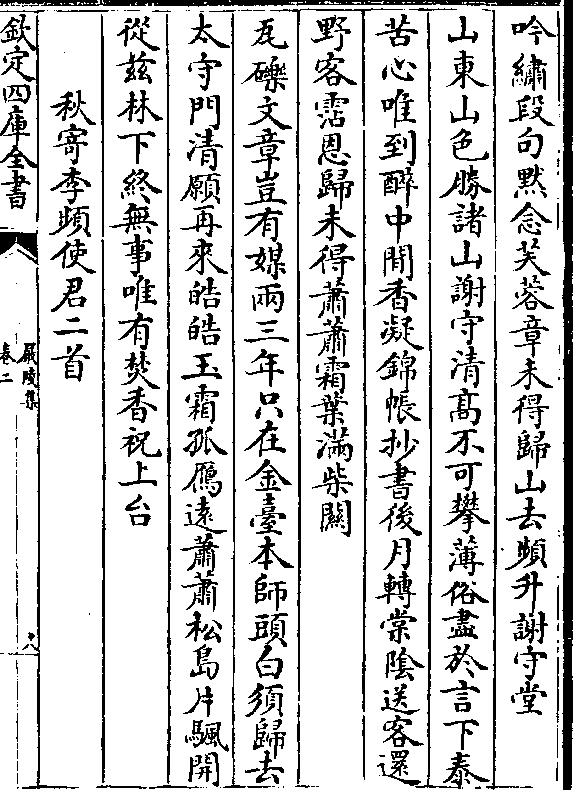 吟繡段句默念芙蓉章未得歸山去頻升謝守堂
山東山色勝諸山謝守清高不可攀薄俗盡於言下泰
苦心唯到醉中閒香凝錦帳抄書後月轉棠陰送客還
野客霑恩歸未得蕭蕭霜葉滿柴關
瓦礫文章豈有媒兩三年只在金臺本師頭白須歸去
太守門清願再來皓皓玉霜孤鴈遠蕭蕭松島片颿開
從兹林下終無事唯有焚香祝上台
秋寄李頻使君二首
欽定四庫全書
嚴陵集
卷二
十八